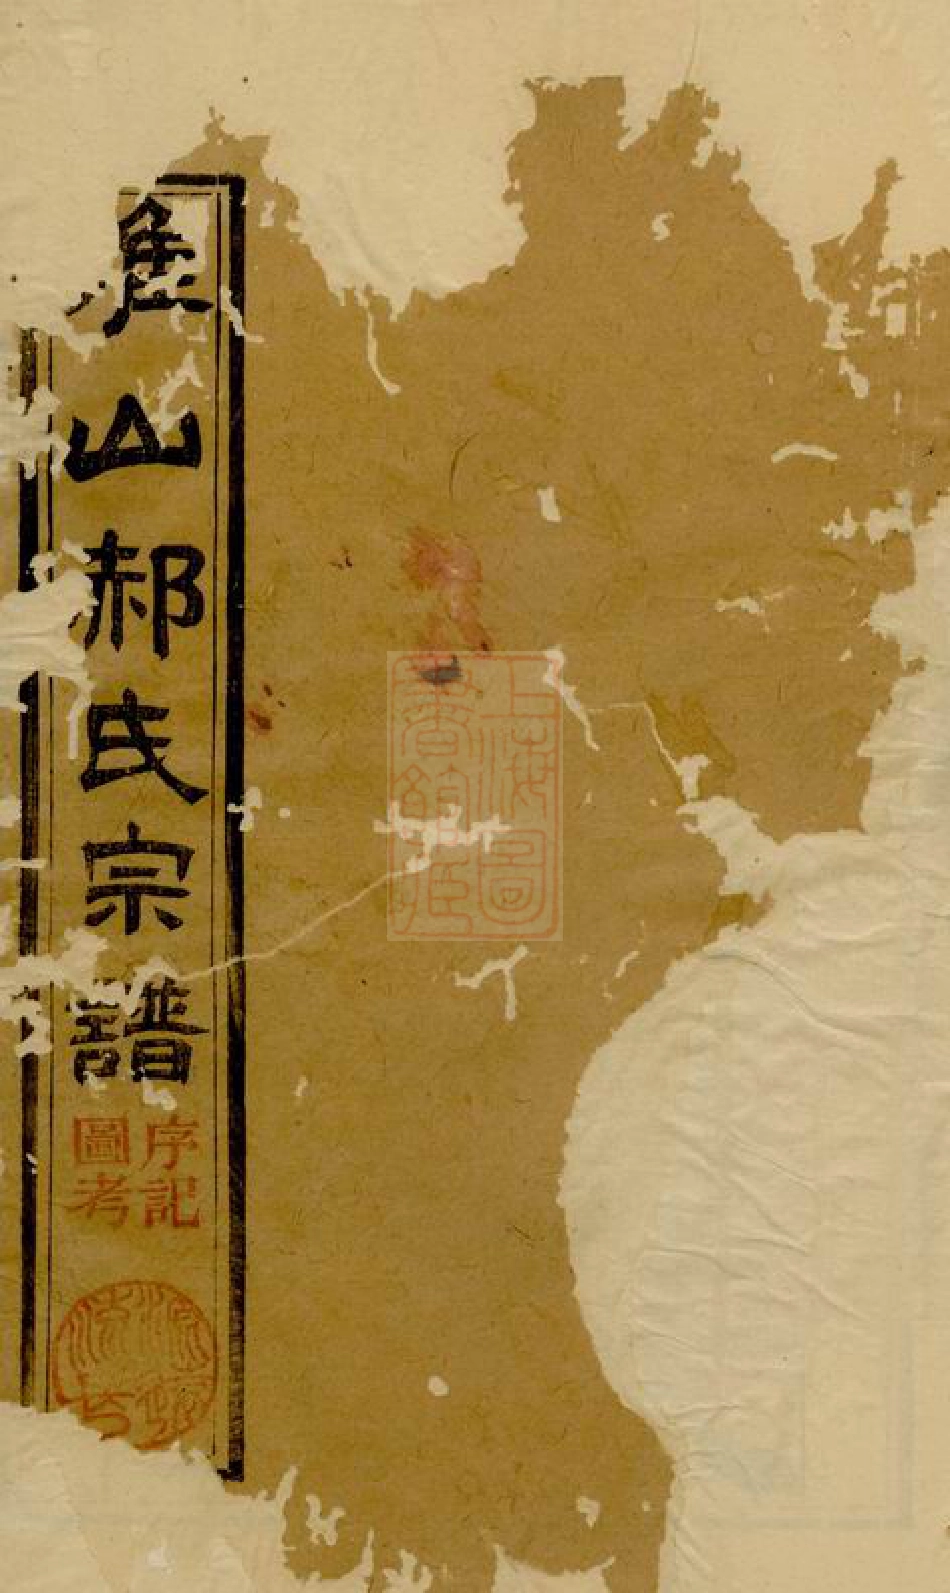 山郝氏宗譜
序記
圖考
上海圖
書館藏